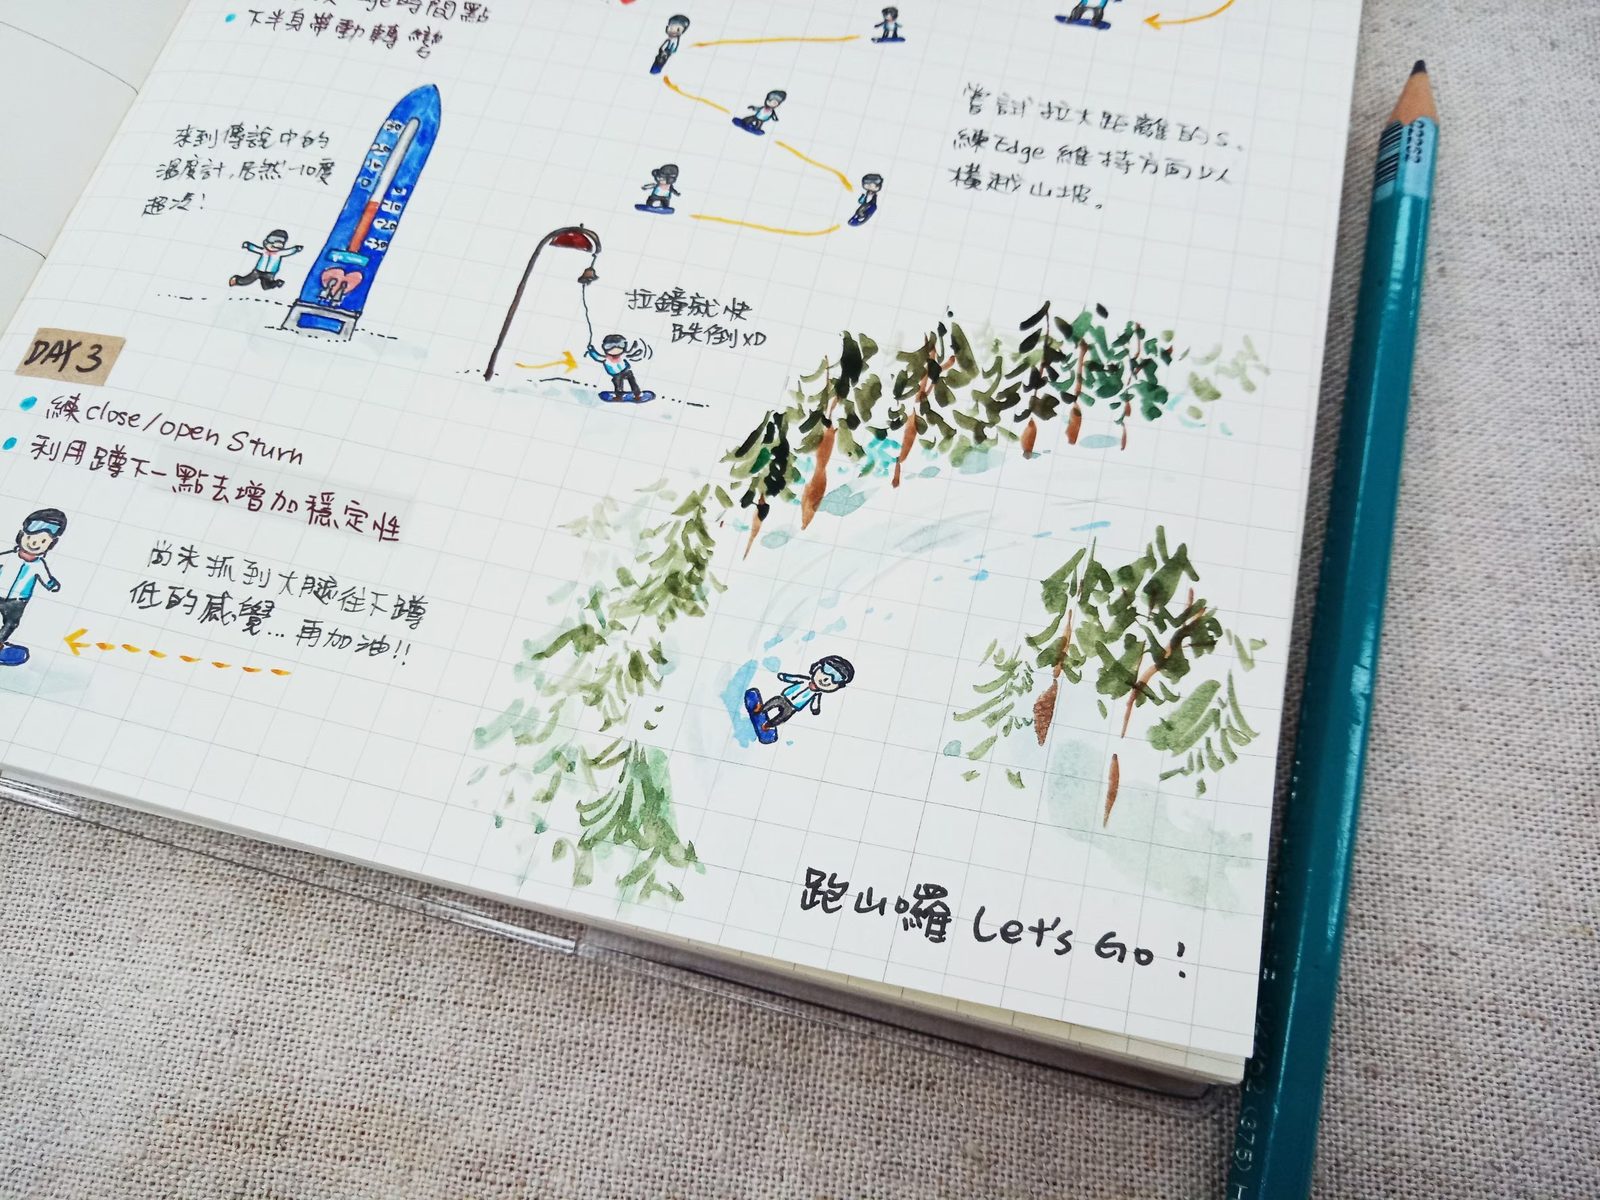 時間點
下半身帶動轉彎
來到傳說中的
溫度計,居然-10度
超冷!
30
20
10
0
-10
-20
-30
嘗試拉大距離的S,
練Edge維持方向以
橫越山坡。
拉鐘就快
跌倒XD
DAY 3
練close/open Sturn
利用蹲下一點去增加穩定性
尚未抓到大腿往下蹲
低的感覺...再加油!!
跑山囉 Let's Go!